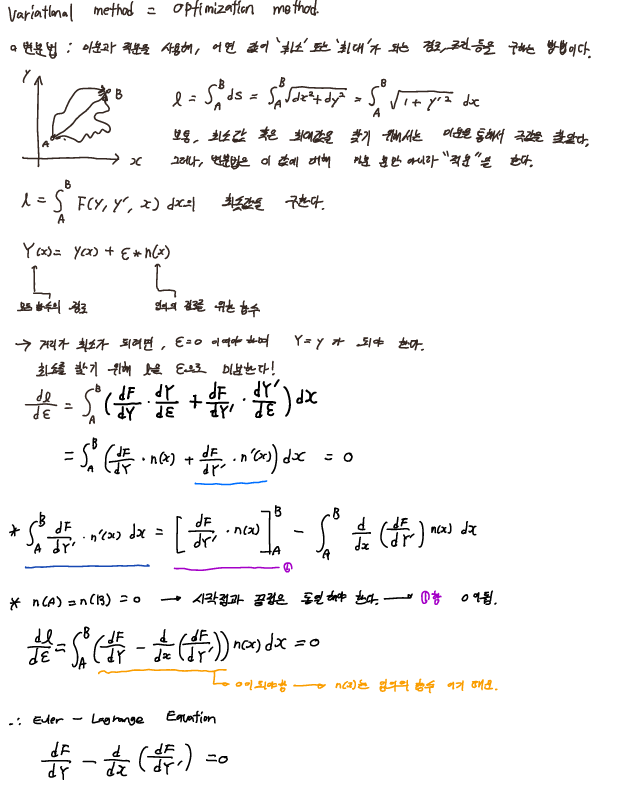 Variational method = optimization method.
변분법 : 미분과 적분을 사용해, 어떤 값이 '최소' 또는 '최대'가 되는 경로, 조건 등을 구하는 방법이다.
Y
B
A
x
l = ∫_A^B ds = ∫_A^B √(dx²+dy²) = ∫_A^B √(1 + y'²) dx
보통, 최소값 혹은 최대값을 찾기 위해서는 미분을 통해서 극값을 찾았다.
그러나, 변분법은 이 값에 대해 미분 뿐만 아니라 "적분"을 한다.
l = ∫_A^B F(Y, Y', x) dx의 최솟값을 구한다.
Y(x) = y(x) + ε*n(x)
모든 함수의 경로 임의의 경로를 위한 함수
→ 거리가 최소가 되려면, ε=0 이여야 하며 Y=y가 되야 한다.
최소를 찾기 위해 l을 ε으로 미분한다!
dl/dε = ∫_A^B (dF/dY · dY/dε + dF/dY' · dY'/dε) dx
= ∫_A^B (dF/dY · n(x) + dF/dY' · n'(x)) dx = 0
* ∫_A^B dF/dY' · n'(x) dx = [dF/dY' · n(x)]_A^B - ∫_A^B d/dx (dF/dY') n(x) dx
①
* n(A) = n(B) = 0 → 시작점과 끝점은 동일해야 한다. → ①항 0 이됨.
dl/dε = ∫_A^B (dF/dY - d/dx (dF/dY')) n(x) dx = 0
0이 되야함 → n(x)는 임의의 함수 이기 때문.
∴ Euler - Lagrange Equation
dF/dY - d/dx (dF/dY') = 0